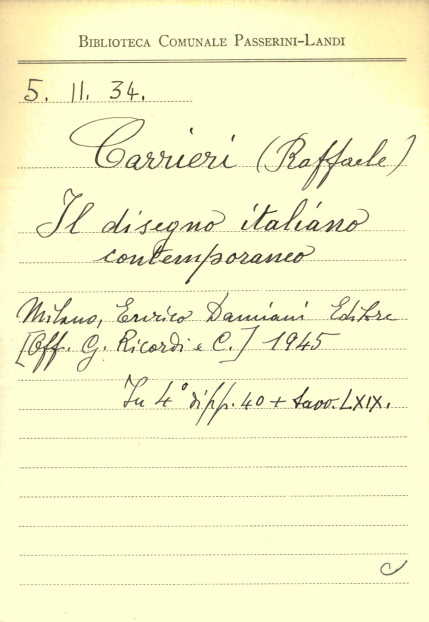 BIBLIOTECA COMUNALE PASSERINI-LANDI
5. II. 34.
Carrieri (Raffaele)
Il disegno italiano
contemporaneo
Milano, Enrico Damiani Editore
[Off. G. Ricordi e C.] 1945
In 4° di pp. 40 + tavv. LXIX.
C